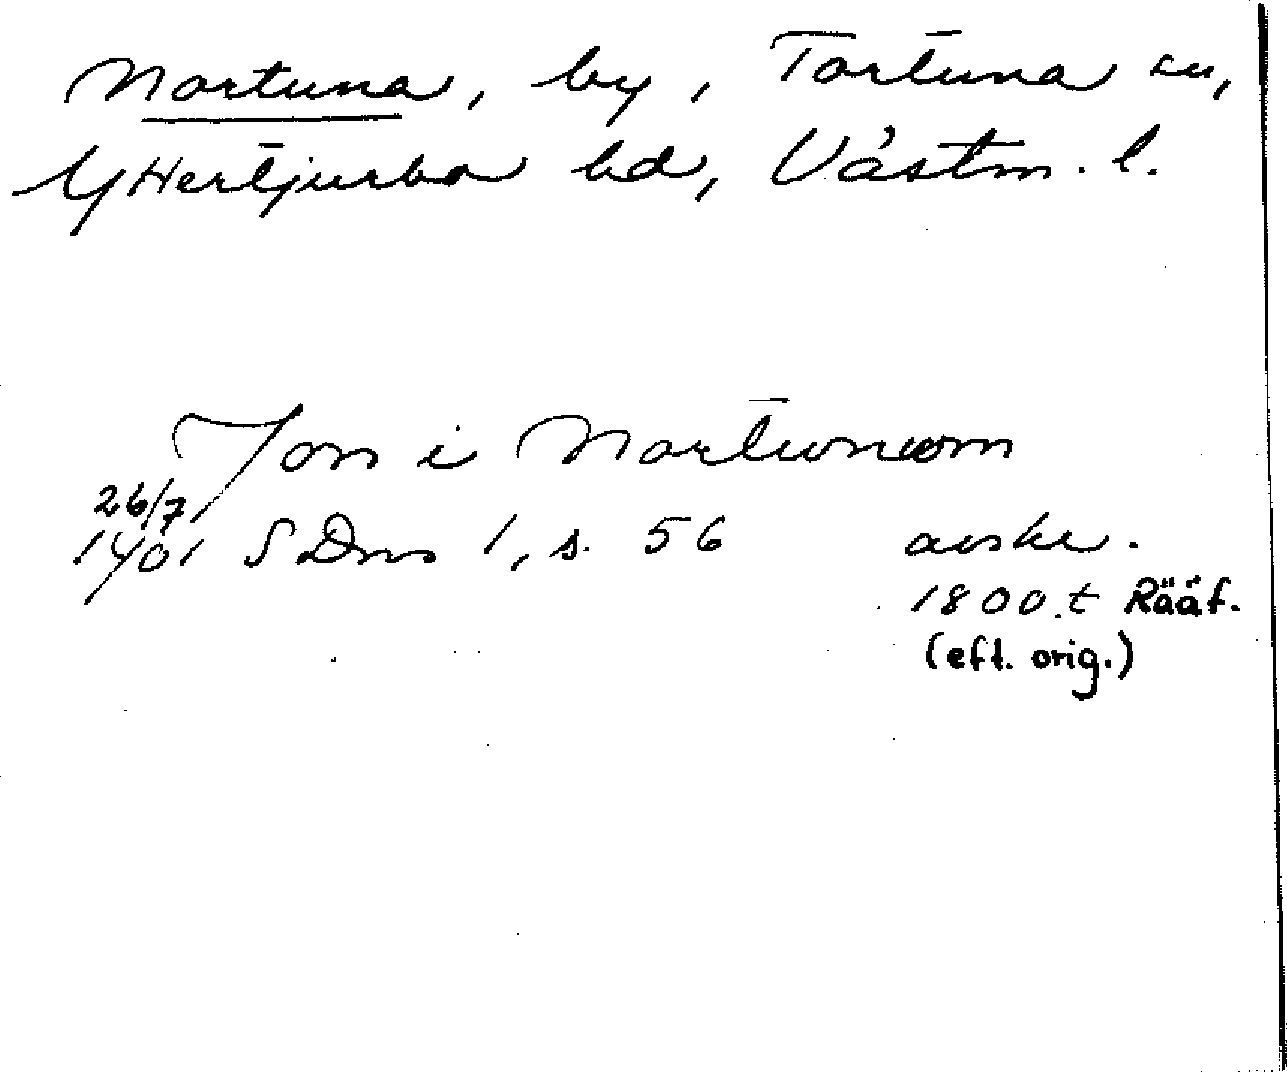 Nortuna, by, Tortuna sn,
Yttertjurbo hd, Västm. l.
Jon i Nortunom
26/7
1401 SDns 1, s. 56 avskr.
1800.t Rääf.
(eft. orig.)